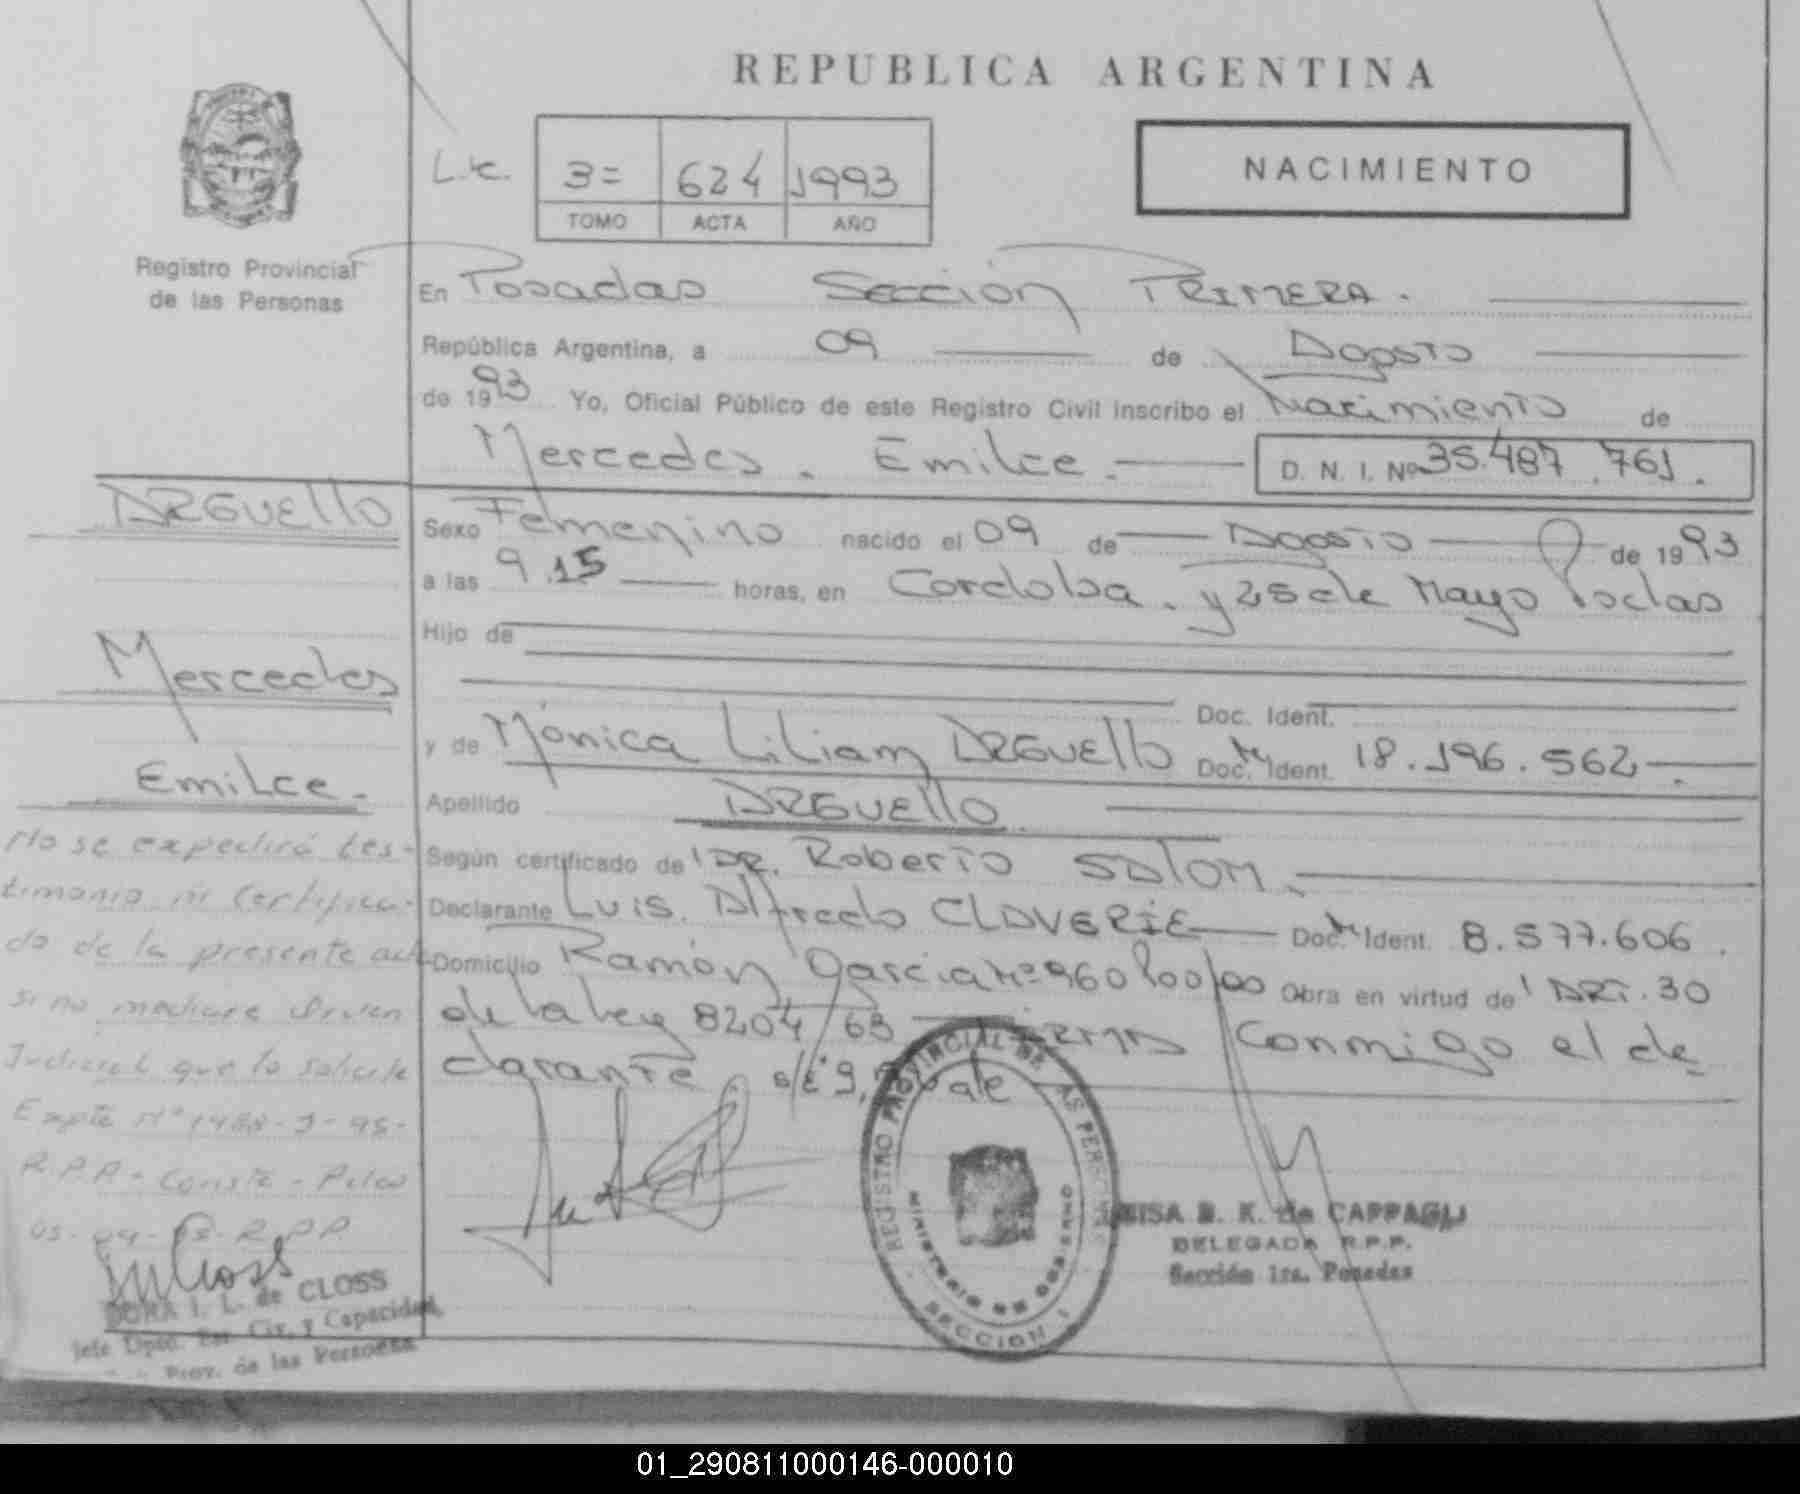 REPUBLICA ARGENTINA
NACIMIENTO
3= 624 1993
TOMO ACTA AÑO
Registro Provincial
de las Personas
En Posadas Sección PRIMERA.
República Argentina, a 09 de Agosto
de 1993 Yo, Oficial Público de este Registro Civil inscribo el Nacimiento de
Mercedes. Emilce. D. N. I. Nº 35.487.761.
ARGUello
Sexo Femenino nacido el 09 de Agosto de 1993
a las 9.15 horas, en Cordoba. y 25 de Mayo Posdas
Hijo de
Doc. Ident.
Mercedes
y de Mónica Liliam ARGUello Doc. Ident. 18.196.562
Emilce.
Apellido ARGUello.
Según certificado de DR. Roberto SALOM.
Declarante Luis. Alfredo CLAVERIE Doc. Ident. 8.577.606.
Domicilio Ramón Garcia Nº 960 Obra en virtud de ART. 30
de la ley 8204/63 FIRMA Conmigo el de
clarante s/E 9, vale
No se expedirá tes-
timonio ni Certifica-
do de la presente acta
si no mediare Orden
Judicial que lo solicite
Expte Nº
R.P.P.
REGISTRO PROVINCIAL DE LAS PERSONAS
MINISTERIO DE GOBIERNO
SECCION 1
B. K. de CAPPAGLI
DELEGADA R.P.P.
Sección 1ra. Posadas
DORA I. L. de CLOSS
Jefe Dpto. Est. Civ. y Capacidad
Prov. de las Personas
01_290811000146-000010